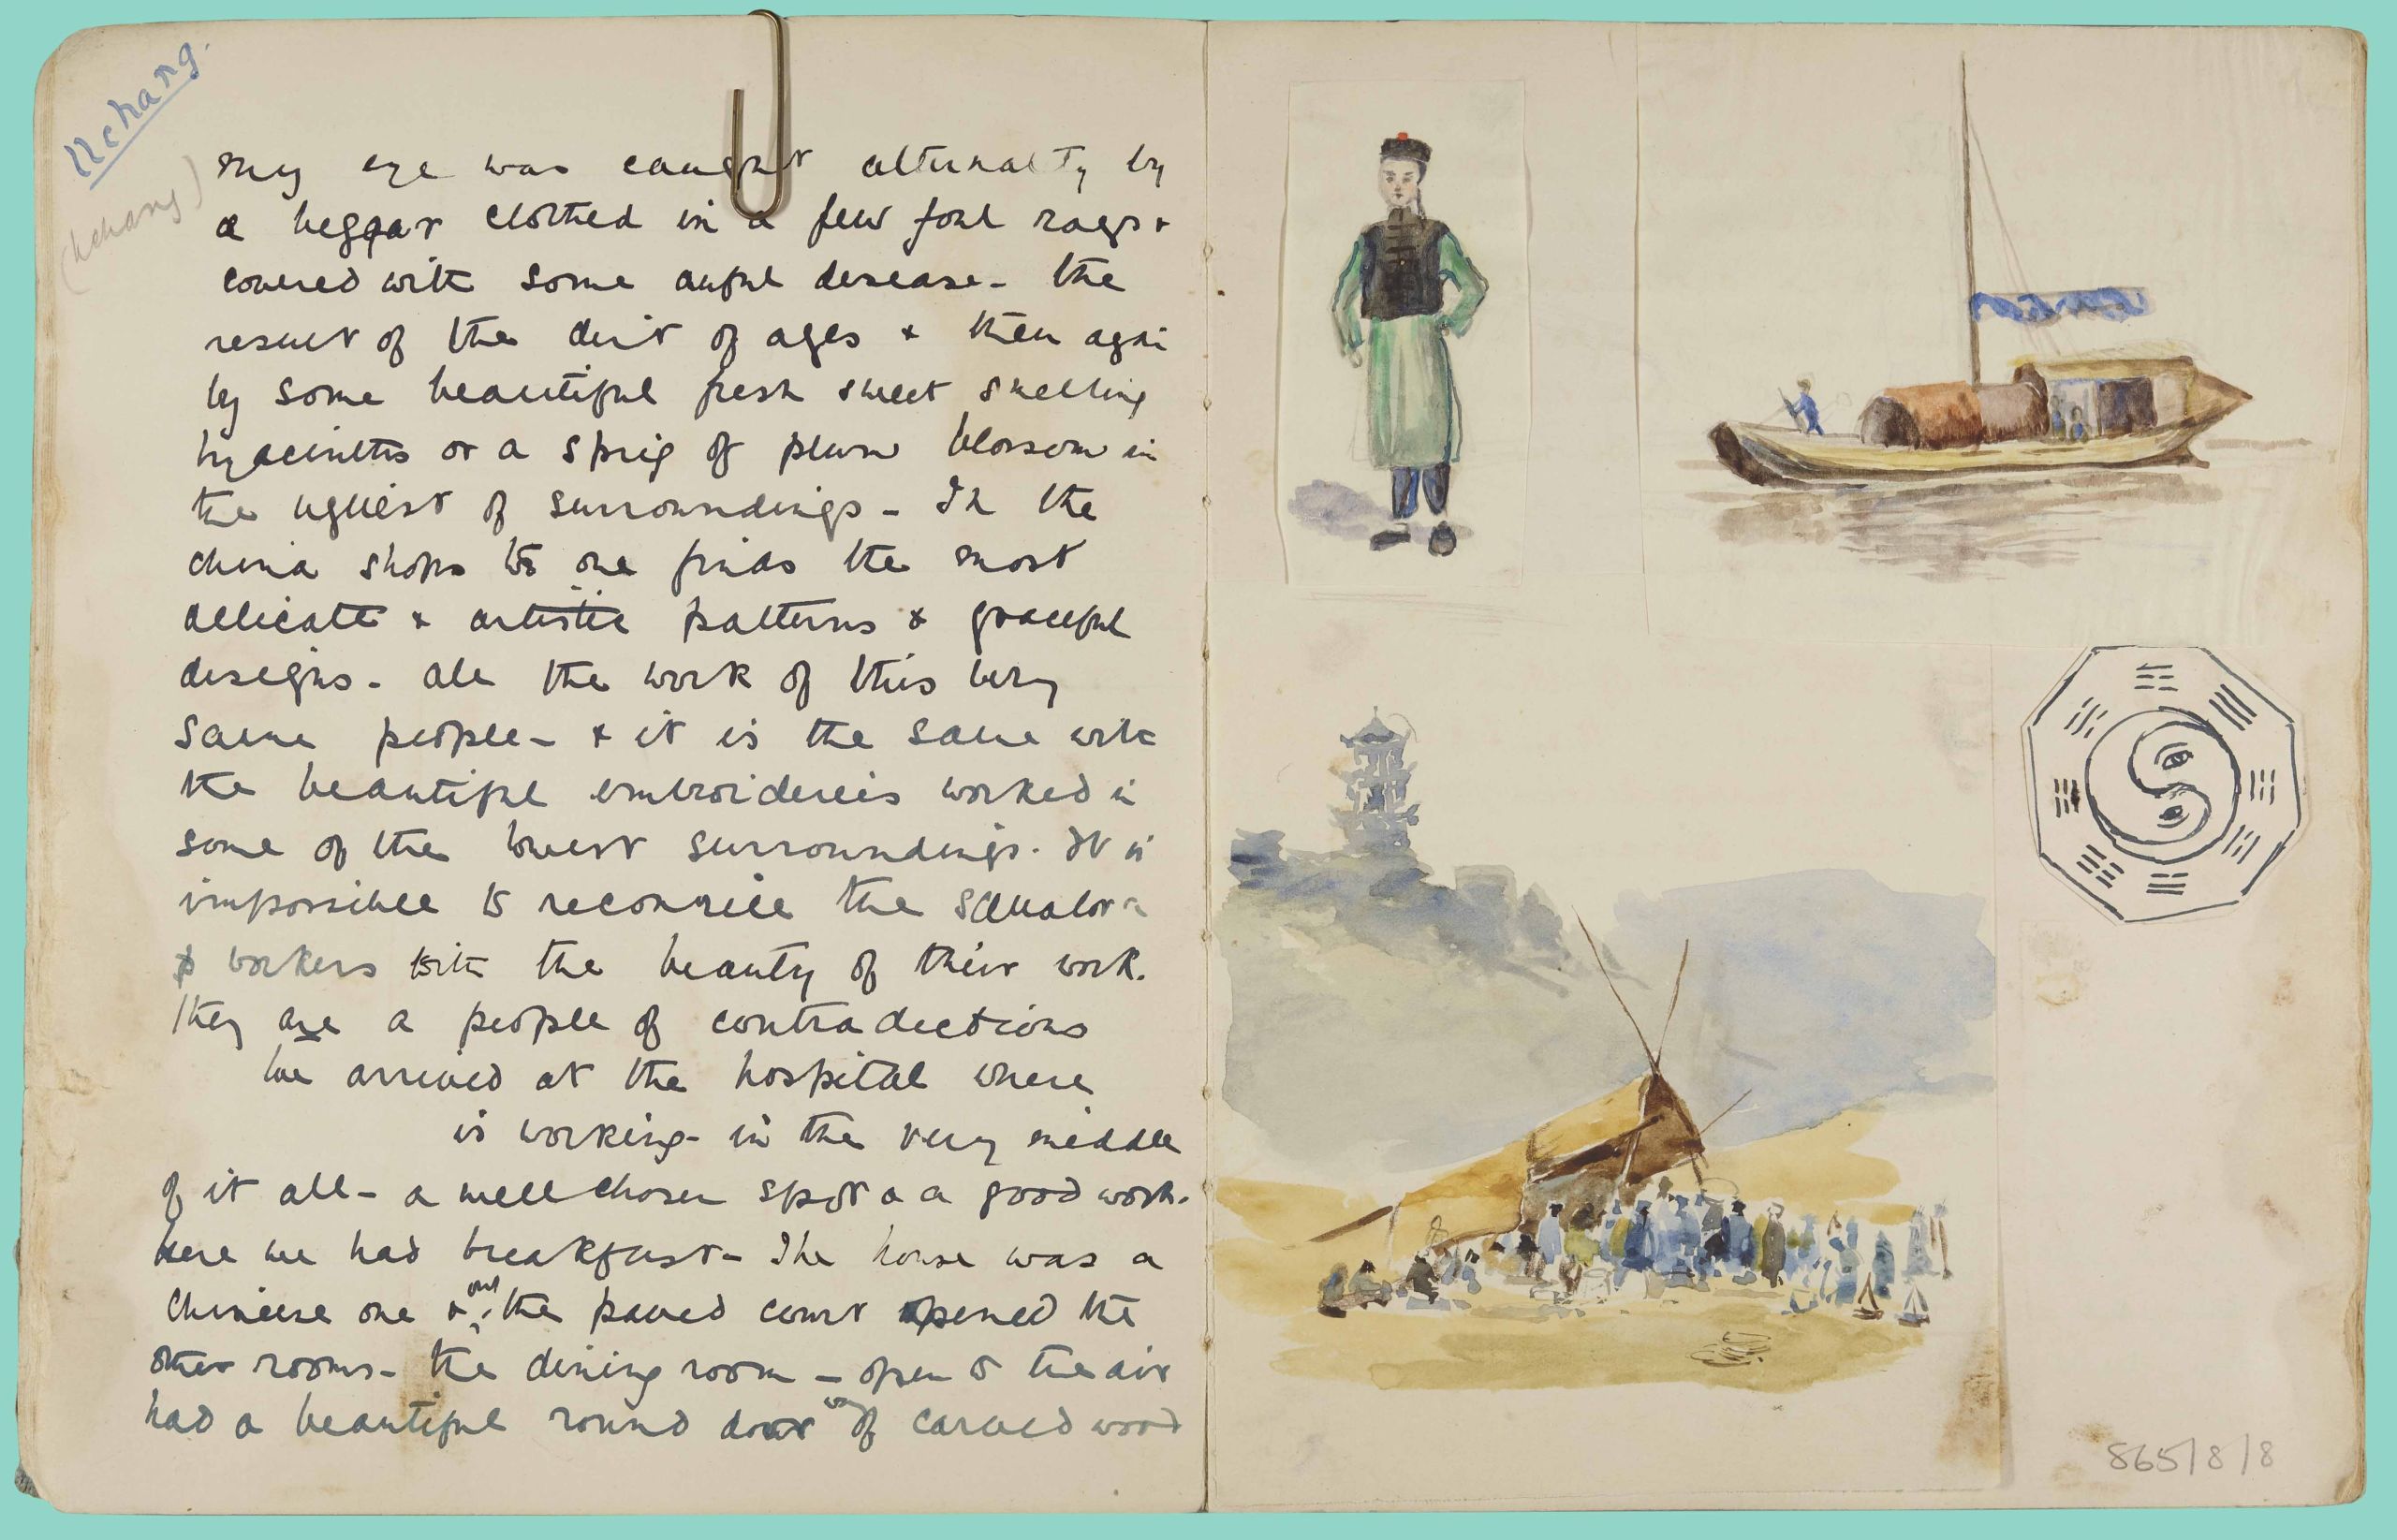 Ichang.
(Ichang)
my eye was caught alternatly by
a beggar clothed in a few foul rags &
covered with some awful desease - the
result of the dirt of ages & then agai
by some beautiful fresh sweet smelling
hyacinths or a sprig of plum blossom in
the ugliest of surroundings - In the
china shops one finds the most
delicate & artistic patterns & graceful
designs - all the work of this very
same people - & it is the same with
the beautiful embroideries worked in
some of the lowest surroundings. It is
impossible to reconcile the squalor
workers with the beauty of their work.
They are a people of contradictions
We arrived at the hospital where
is working - in the very middle
of it all - a well chosen spot a a good work.
Here we had breakfast - The house was a
Chineese one & out the paved court opened the
other rooms - the dining room - open to the air
had a beautiful round door way of carved wood
865/8/8